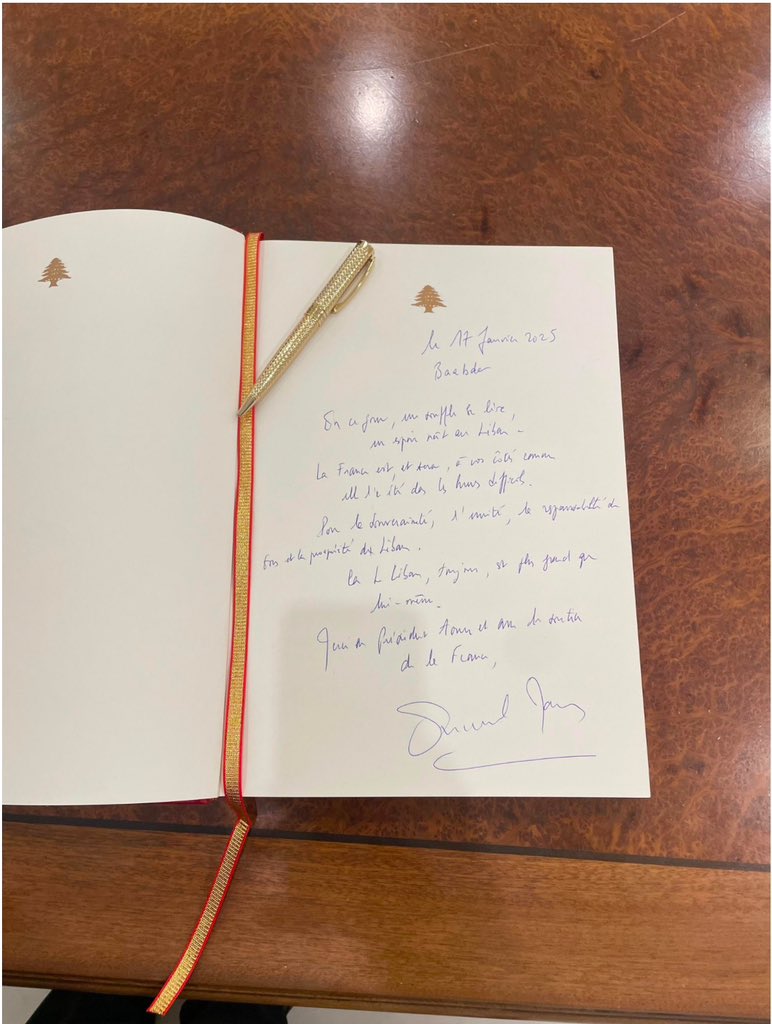 le 17 Janvier 2025
Baabda
En ce jour, un souffle se lève,
un espoir naît au Liban.
La France est, et sera, à vos côtés comme
elle l'a été dans les heures difficiles.
Pour la souveraineté, l'unité, la responsabilité de
tous et la prospérité du Liban.
Car le Liban, toujours, est plus grand que
lui-même.
au Président Aoun et du soutien
de la France,